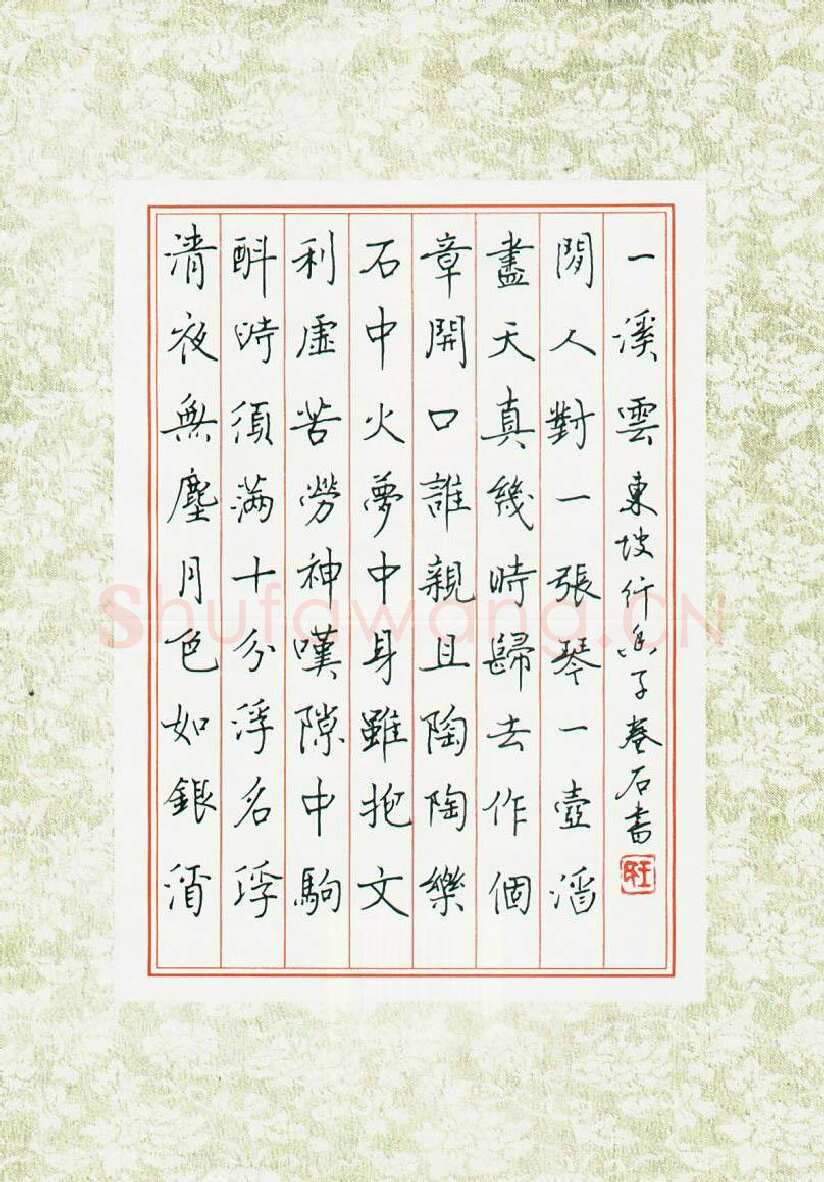 清夜無塵月色如銀酒
斟時須滿十分浮名浮
利虛苦勞神嘆隙中駒
石中火夢中身雖抱文
章開口誰親且陶陶樂
盡天真幾時歸去作個
閒人對一張琴一壺酒
一溪雲 東坡行香子 卷石書
Shufawang.CN